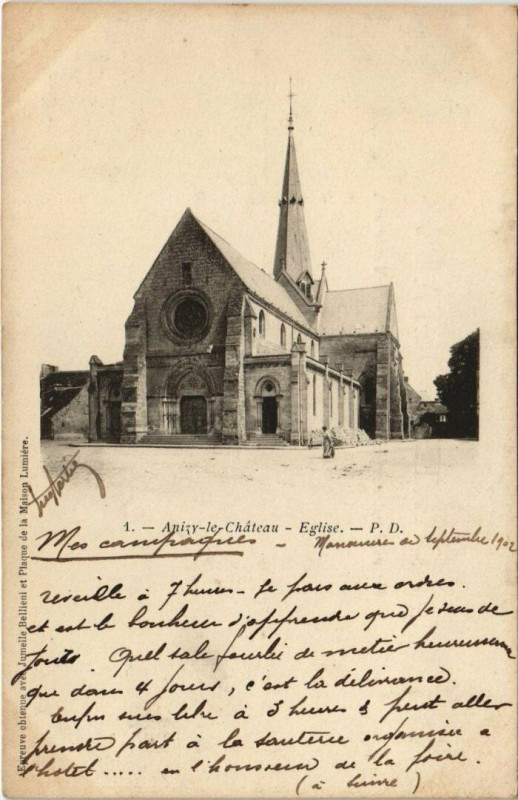 1. — Anizy-le-Château - Eglise. — P. D.
Mes campagnes - Manœuvres de Septembre 1902
réveillé à 7 heures - Je pars aux ordres.
et est le bonheur d'apprendre que je suis de
jour. Quel sale fourbi de métier heureusement
que dans 4 jours, c'est la délivrance.
Enfin suis libre à 3 heures & peut aller
prendre part à la sauterie organisée à
l'hotel ..... en l'honneur de la foire.
(à suivre)
Epreuve obtenue avec Jumelle Bellieni et Plaque de la Maison Lumière.